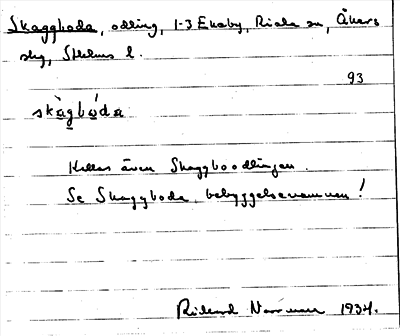 Skaggboda, odling, 1-3 Ekeby, Riala sn, Åkers
skg, Sthlms l.
93
skàgbo̯da
Kallas även Skaggboodlingen.
Se Skaggboda, bebyggelsenamnen!
Rickard Norrman 1934.